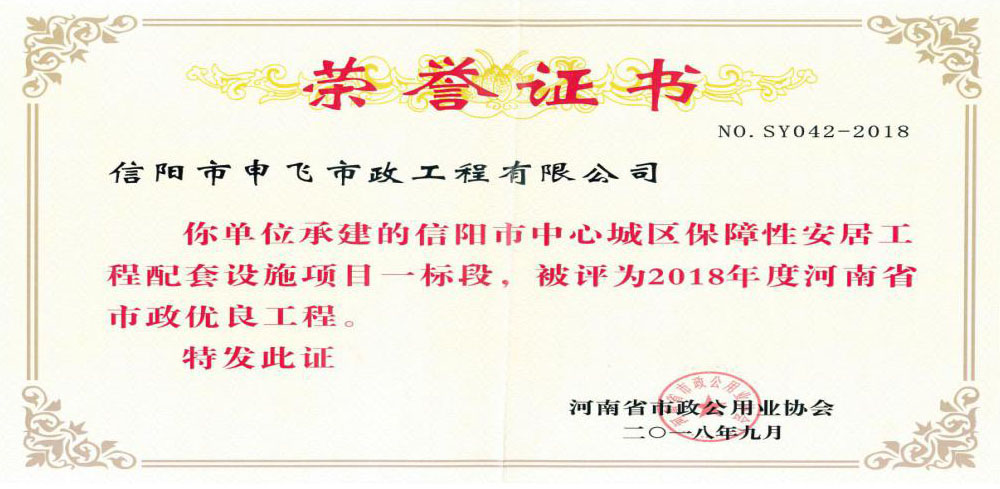 荣誉证书
NO.SY042-2018
信阳市申飞市政工程有限公司
你单位承建的信阳市中心城区保障性安居工
程配套设施项目一标段，被评为2018年度河南省
市政优良工程。
特发此证
河南省市政公用业协会
河南省市政公用业协会
二〇一八年九月